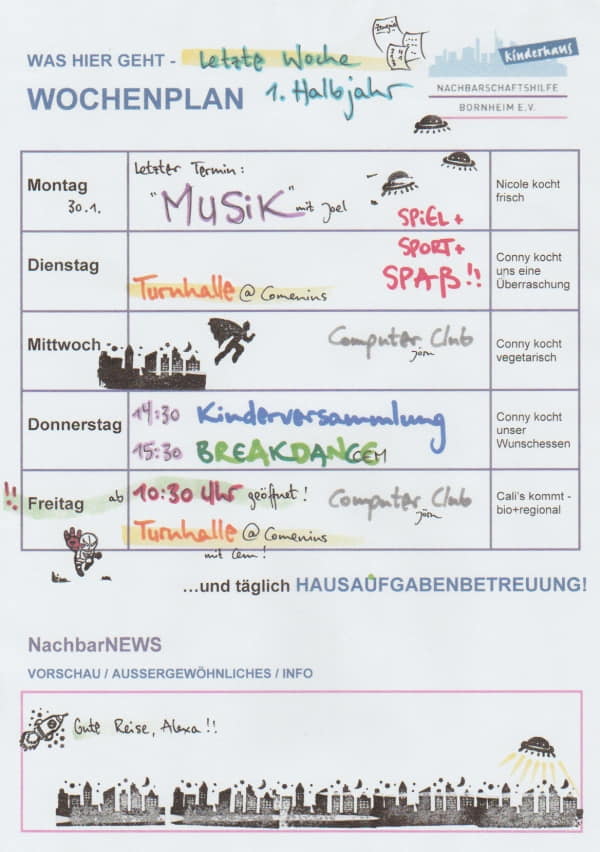 WAS HIER GEHT - Letzte Woche
WOCHENPLAN 1. Halbjahr
Zeugnis
kinderhaus
NACHBARSCHAFTSHILFE
BORNHEIM E.V.
Montag
30.1.
Letzter Termin:
"MUSIK" mit Joel
SPiEL +
SPORT +
SPAß!!
Nicole kocht
frisch
Dienstag
Turnhalle @ Comenius
Conny kocht
uns eine
Überraschung
Mittwoch
Computer Club
Jörn
Conny kocht
vegetarisch
Donnerstag
14:30 Kinderversammlung
15:30 BREAKDANCE CEM
Conny kocht
unser
Wunschessen
!! Freitag
ab 10:30 Uhr geöffnet!
Turnhalle @ Comenius
mit Cem!
Computer Club
Jörn
Cali's kommt -
bio+regional
...und täglich HAUSAUFGABENBETREUUNG!
NachbarNEWS
VORSCHAU / AUSSERGEWÖHNLICHES / INFO
Gute Reise, Alexa!!